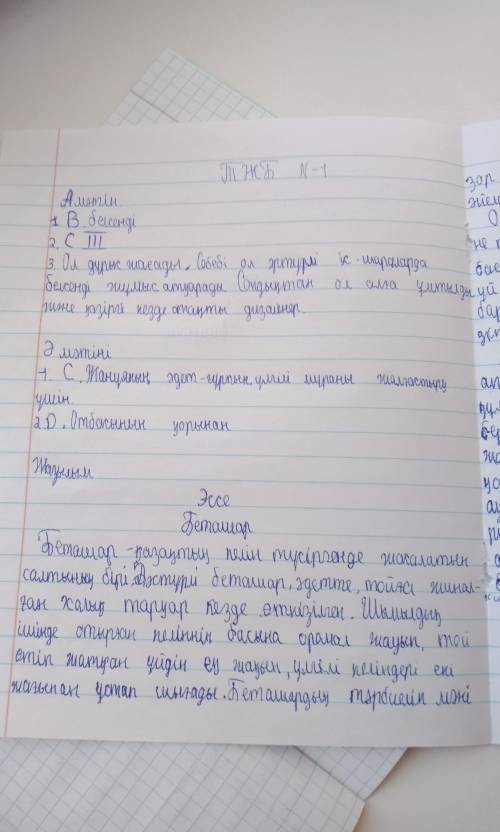 ТЖБ N-1
А мәтін
1. В белсенді
2. С III
3. Ол дұрыс жасады. Себебі ол әртүрлі іс-шараларда
белсенді жұмыс атқарады. Сондықтан ол алға ұмтылды
және қазіргі кезде атақты дизайнер.
Ә мәтіні
1. С. Жануяның әдет-ғұрпын, үлгілі мұраны жалғастыру
үшін
2 D. Отбасының қорынан
Жазылым
Эссе
Беташар
Беташар - қазақтың келін түсіргенде жасалатын
салтының бірі. Дәстүрлі беташар, әдетте, тойға жинал-
ған халық тарқар кезде өткізілген. Шымылдық
ішінде отырған келіннің басына орамал жауып, той
өтіп жатқан үйдің ең жақын, үлгілі келіндері екі
жағынан ұстап шығады. Беташардың тәрбиелік мәні
зар
не
бас
үй
бар
ұст